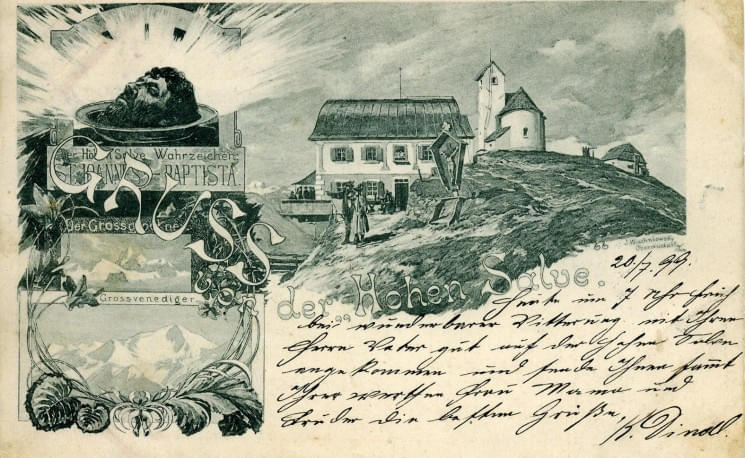 Der Hohen Salve Wahrzeichen:
ST. JOANNES BAPTISTA
GRUSS
Der Grossglockner
von
Grossvenediger
der „Hohen Salve.“
20./7. 99.
Heute um 7 Uhr früh
bei wunderbarer Witterung mit Ihrem
Herrn Vater gut auf der Hohen Salve
angekommen und sende Ihnen sammt
Ihrer werthen Frau Mama und
Bruder die besten Grüße,